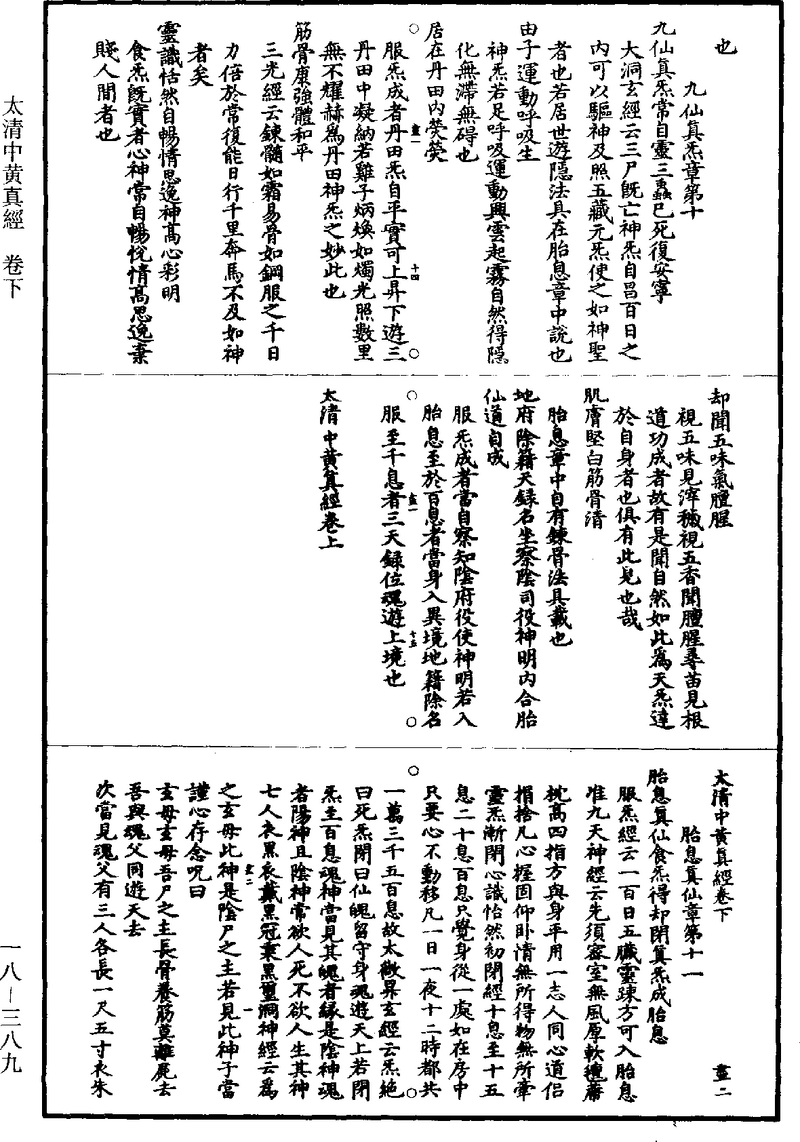 太清中黃真經　卷下
一八－三八九
也
九仙真炁章第十
九仙真炁常自靈三蟲已死復安寧
大洞玄經云三尸既亡神炁自昌百日之
內可以驅神及照五藏元炁使之如神聖
者也若居世遊隱法具在胎息章中說也
由子運動呼吸生
神炁若足呼吸運動興雲起霧自然得隱
化無滯無碍也
居在丹田內熒熒
服炁成者丹田炁自平實可上昇下遊三
丹田中凝納若雞子炳煥如燭光照數里
無不耀赫為丹田神炁之妙此也
筋骨康強體和平
三光經云鍊髓如霜易骨如鋼服之千日
力倍於常復能日行千里奔馬不及如神
者矣
靈識恬然自暢情思逸神高心彩明
食炁既實者心神常自暢悅情高思逸棄
賤人間者也
畫一
十四
却聞五味氣膻腥
視五味見滓穢視五香聞膻腥尋苗見根
道功成者故有是聞自然如此為天炁達
於自身者也俱有此兒也哉
肌膚堅白筋骨清
胎息章中自有鍊骨法具載也
地府除籍天錄名坐察陰司役神明內合胎
仙道自成
服炁成者當自察知陰府役使神明若入
胎息至於百息者當身入異境地籍除名
服至千息者三天錄位魂遊上境也
畫一
十五
太清中黃真經卷上
太清中黃真經卷下
畫二
胎息真仙章第十一
胎息真仙食炁得却閉真炁成胎息
服炁經云一百日五臟靈踈方可入胎息
准九天神經云先須密室無風厚軟氈席
枕高四指方與身平用一志人同心道侶
捐捨凡心握固仰臥情無所得物無所牽
靈炁漸閉心識怡然初閉經十息至十五
息二十息百息只覺身從一處如在房中
只要心不動移凡一日一夜十二時都共
一萬三千五百息故太微昇玄經云炁絕
曰死炁閉曰仙魄留守身魂遊天上若閉
炁至百息魂神當見其魄者緣是陰神魂
者陽神且陰神常欲人死不欲人生其神
七人衣黑衣戴黑冠秉黑璽洞神經云為
之玄母此神是陰尸之主若見此神子當
謹心存念呪曰
玄母玄母吾尸之主長骨養筋莫離屍去
吾與魂父同遊天去
次當見魂父有三人各長一尺五寸衣朱
畫二
一